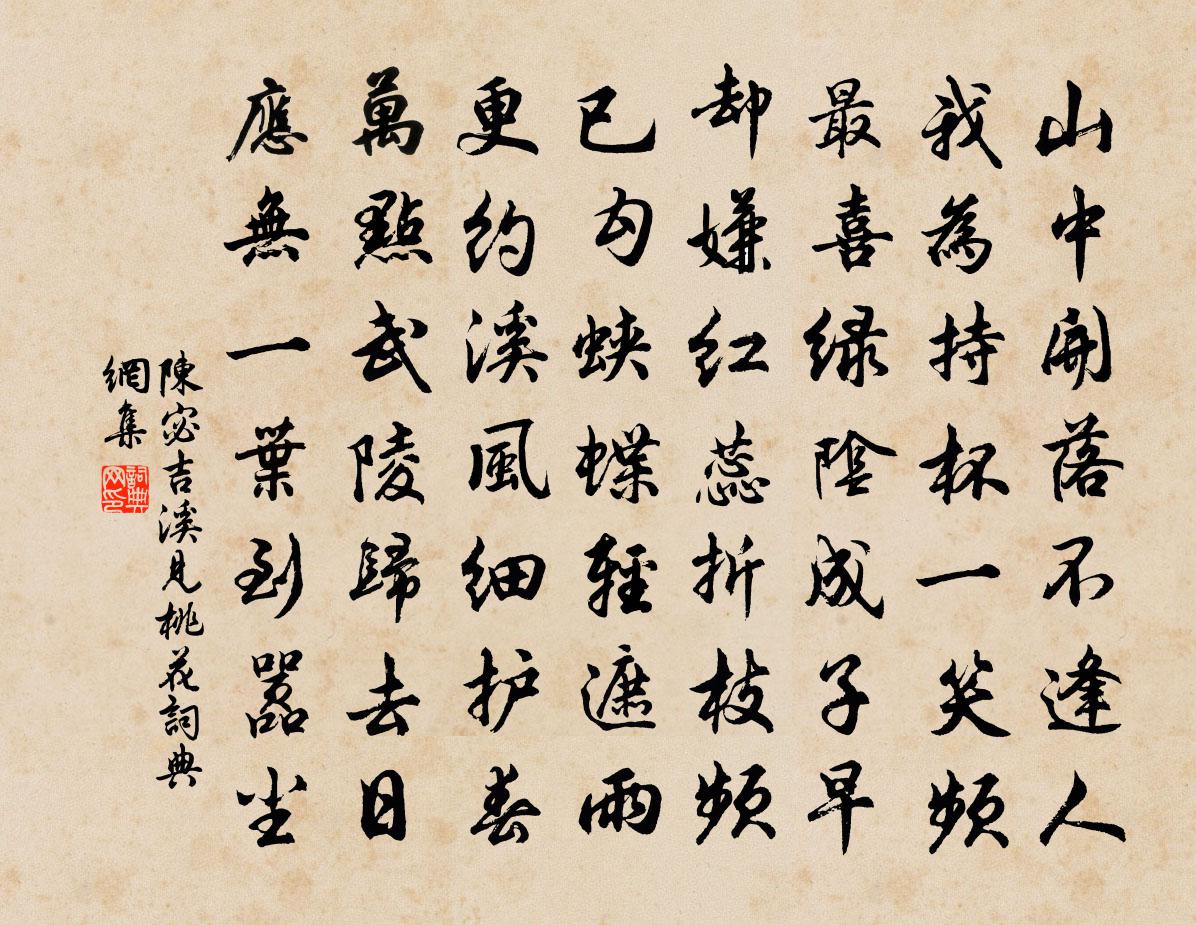 山中開落不逢人
我為持杯一笑頻
最喜绿陰成子早
却嫌红蕊折枝頻
已匄蛺蝶輕遮雨
更约溪風细护春
萬點武陵歸去日
應無一葉到囂尘
陳宓吉溪見桃花詞典
網集
詞典网印